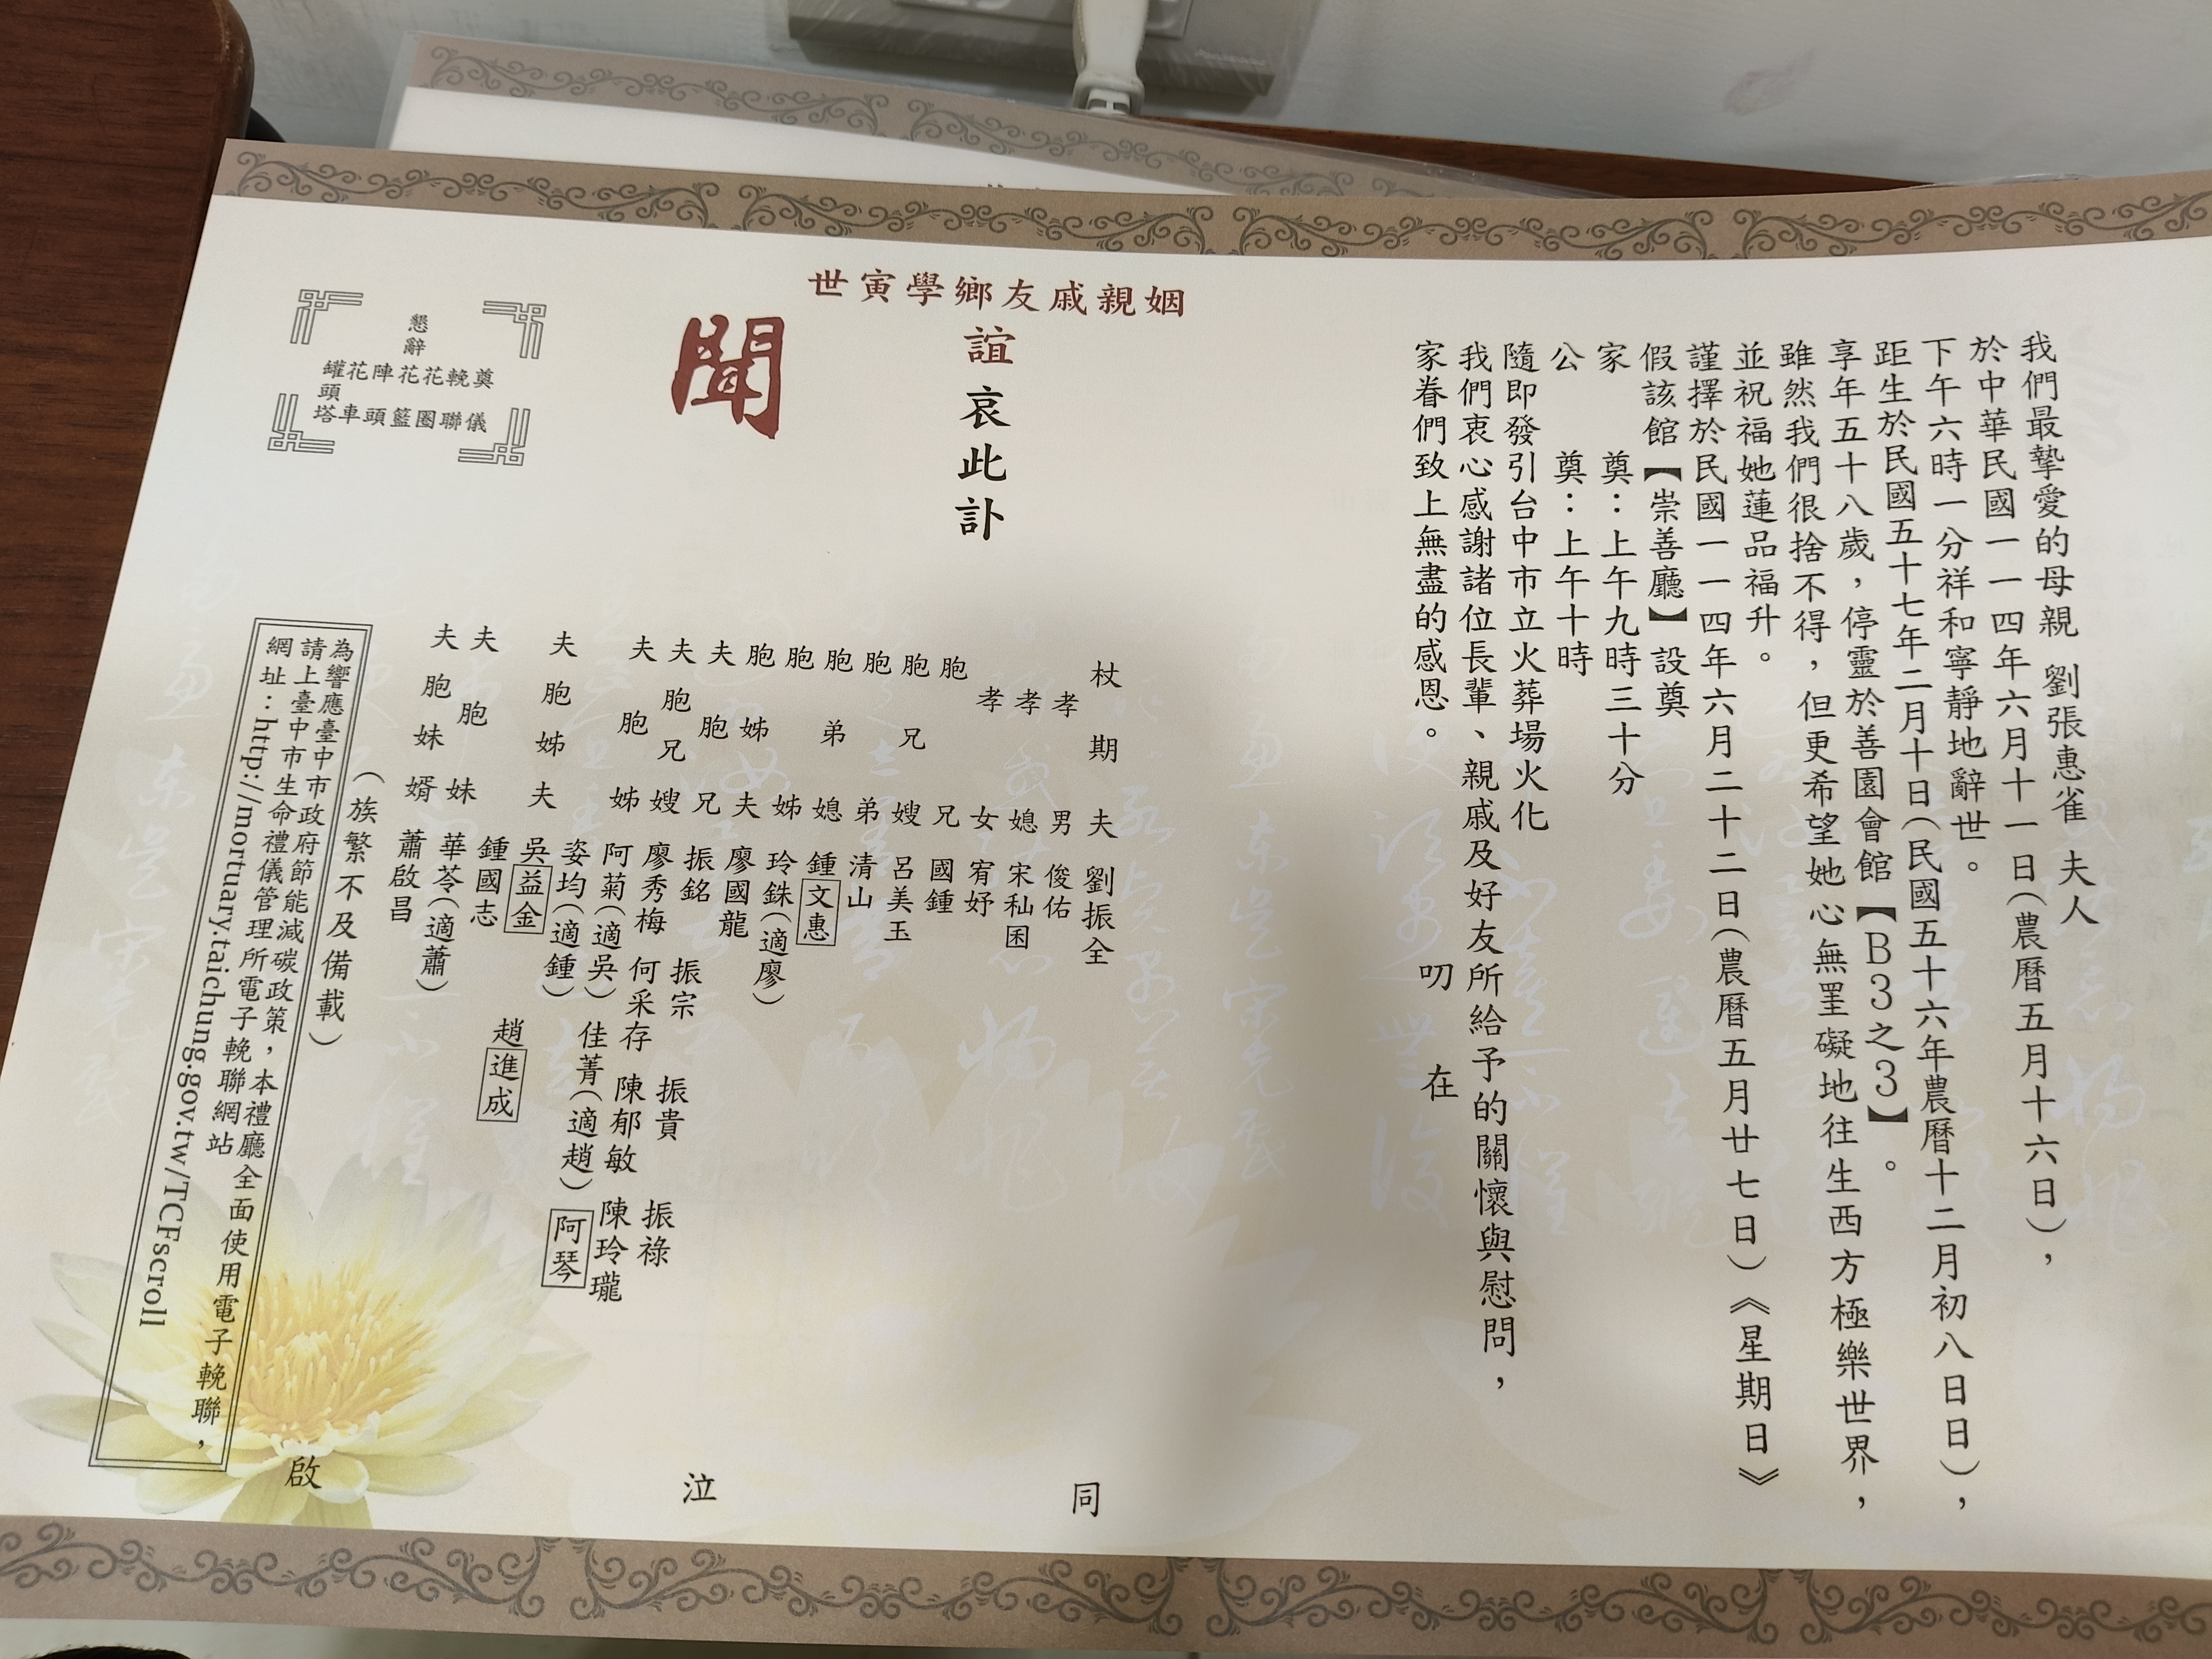 我們最摯愛的母親 劉張惠雀 夫人
於中華民國一一四年六月十一日(農曆五月十六日)，
下午六時一分祥和寧靜地辭世。
距生於民國五十七年二月十日(民國五十六年農曆十二月初八日日)，
享年五十八歲，停靈於善園會館【B3之3】。
雖然我們很捨不得，但更希望她心無罣礙地往生西方極樂世界，
並祝福她蓮品福升。
謹擇於民國一一四年六月二十二日(農曆五月廿七日)《星期日》
假該館【崇善廳】設奠
家 奠：上午九時三十分
公 奠：上午十時
隨即發引台中市立火葬場火化
我們衷心感謝諸位長輩、親戚及好友所給予的關懷與慰問，
家眷們致上無盡的感恩。 叨 在
世寅學鄉友戚親姻
誼哀此訃
聞
杖期夫 劉振全
孝男 俊佑
孝媳 宋秈囷
孝女 宥妤
胞兄 國鍾
胞兄嫂 呂美玉
胞弟 清山
胞弟媳 鍾文惠
胞姊 玲銖(適廖)
胞姊夫 廖國龍
夫胞兄 振銘 振宗 振貴 振祿
夫胞兄嫂 廖秀梅 何采存 陳郁敏 陳玲瓏
夫胞姊 阿菊(適吳) 佳菁(適趙) 阿琴
姿均(適鍾)
夫胞姊夫 吳益金 趙進成
鍾國志
夫胞妹 華苓(適蕭)
夫胞妹婿 蕭啟昌
(族繁不及備載)
同 泣 啟
懇辭
罐花陣花花輓奠
頭
塔車頭籃圈聯儀
為響應臺中市政府節能減碳政策，本禮廳全面使用電子輓聯，
請上臺中市生命禮儀管理所電子輓聯網站
網址：http://mortuary.taichung.gov.tw/TCFscroll